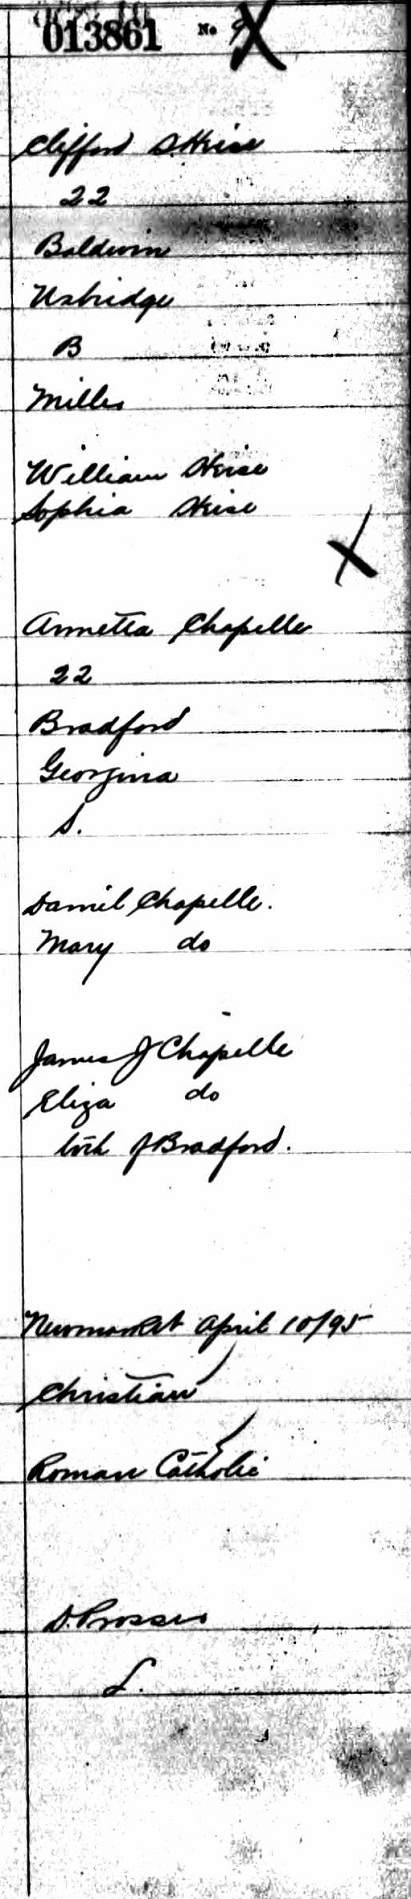 013861 No. 9
Clifford S. Heise
22
Baldwin
Uxbridge
B
Miller
William Heise
Sophia Heise
Annetta Chapelle
22
Bradford
Georgina
S.
Daniel Chapelle.
Mary do
James J Chapelle
Eliza do
both of Bradford.
Newmarket April 10/95
Christian
Roman Catholic
D. Prosser
L.